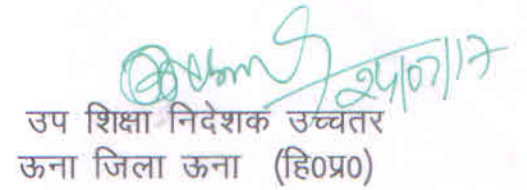 24/07/17
उप शिक्षा निदेशक उच्चतर
ऊना जिला ऊना (हि0प्र0)